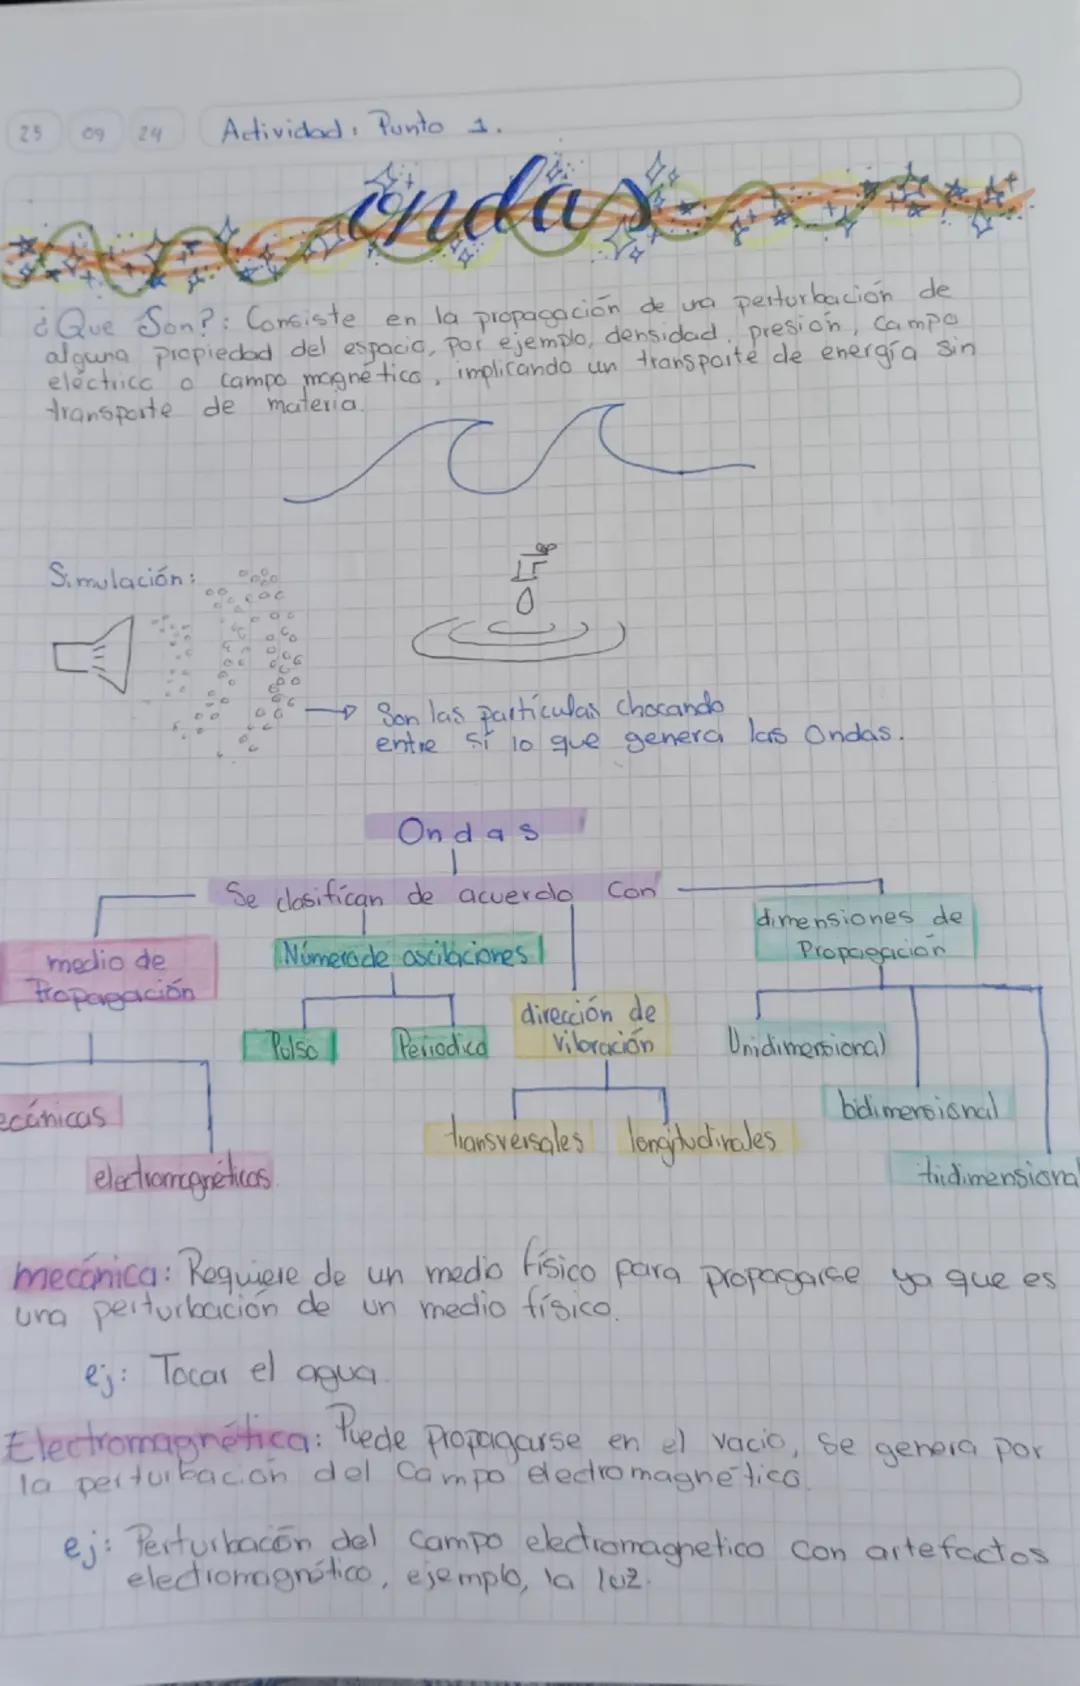 25 09 24 Actividad: Punto 1.
ondas
¿Que Son?: Consiste en la propagación de una perturbación de
alguna propiedad del espacio, por ejemplo, densidad, presión, campo
eléctrico o campo magnético, implicando un transporte de energía sin
transporte de materia.
Simulación:
Son las partículas chocando
entre sí lo que genera las Ondas.
Ondas
Se clasifican de acuerdo con
medio de
Propagación
Número de oscilaciones
dirección de
vibración
dimensiones de
Propagación
Pulso
Periodica
Unidimensional
ecánicas
electromagnéticas.
transversales
longitudinales
bidimensional
tridimensional
mecánica: Requiere de un medio físico para propagarse ya que es
una perturbación de un medio físico.
ej: Tocar el agua.
Electromagnética: Puede propagarse en el vacio, se genera por
la perturbación del campo electromagnético.
ej: Perturbacón del campo electromagnetico con artefactos
electromagnético, ejemplo, la luz.